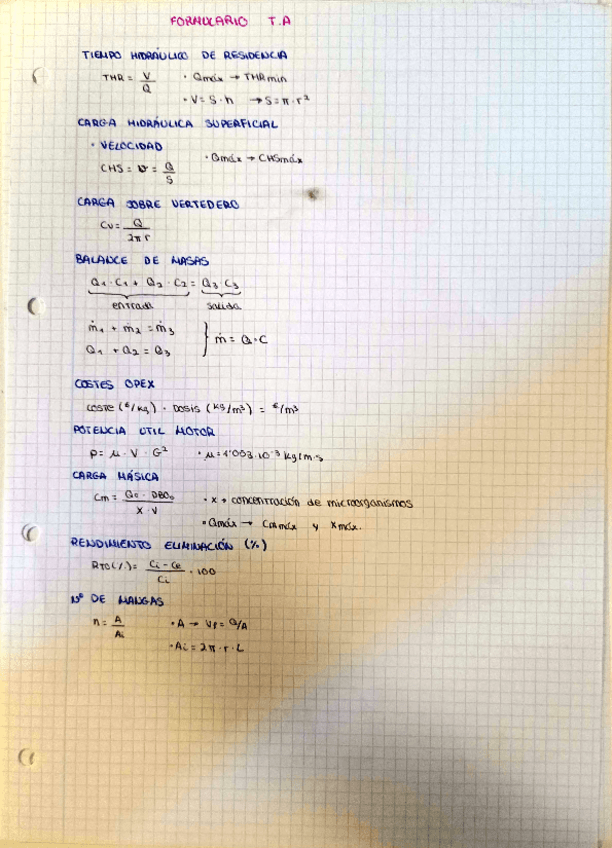 FORMULARIO T.A
TIEMPO HIDRÁULICO DE RESIDENCIA
THR = V/Q · Qmáx → THRmin
· V = S · h → S = π · r²
CARGA HIDRÁULICA SUPERFICIAL
· VELOCIDAD
CHS = v = Q/S · Qmáx → CHSmáx
CARGA SOBRE VERTEDERO
Cv = Q/2πr
BALANCE DE MASAS
Q₁ · C₁ + Q₂ · C₂ = Q₃ · C₃
entrada salida
ṁ₁ + ṁ₂ = ṁ₃
Q₁ + Q₂ = Q₃ } ṁ = Q · C
COSTES OPEX
COSTE (€/kg) · DOSIS (kg/m³) = €/m³
POTENCIA UTIL MOTOR
P = μ · V · G² · μ = 1'003 · 10⁻³ kg/m·s
CARGA MÁSICA
Cm = Q₀ · DBO₀ / X · V · X → concentración de microorganismos
· Qmáx → Cmmáx y Xmáx.
RENDIMIENTO ELIMINACIÓN (%)
RTO (%) = Ci - Ce / Ci · 100
Nº DE MANGAS
n = A/Ai · A → Vf = Q/A
· Ai = 2π · r · L